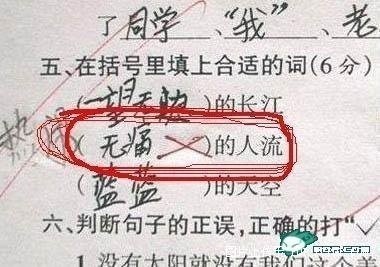 了同学、“我”、老
五、在括号里填上合适的词(6分)
(一望无

)的长江
热闹
(无痛)的人流
(蓝蓝)的天空
六、判断句子的正误,正确的打“√
1.没有太阳就没有我们这个美